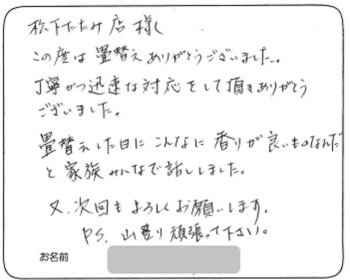 松下たたみ店 様
この度は畳替えありがとうございました。
丁寧かつ迅速な対応をして頂きありがとう
ございました。
畳替えした日にこんなに香りが良いものなんだ
と家族みんなで話しました。
又、次回もよろしくお願いします。
P.S. 山登り頑張って下さい。
お名前